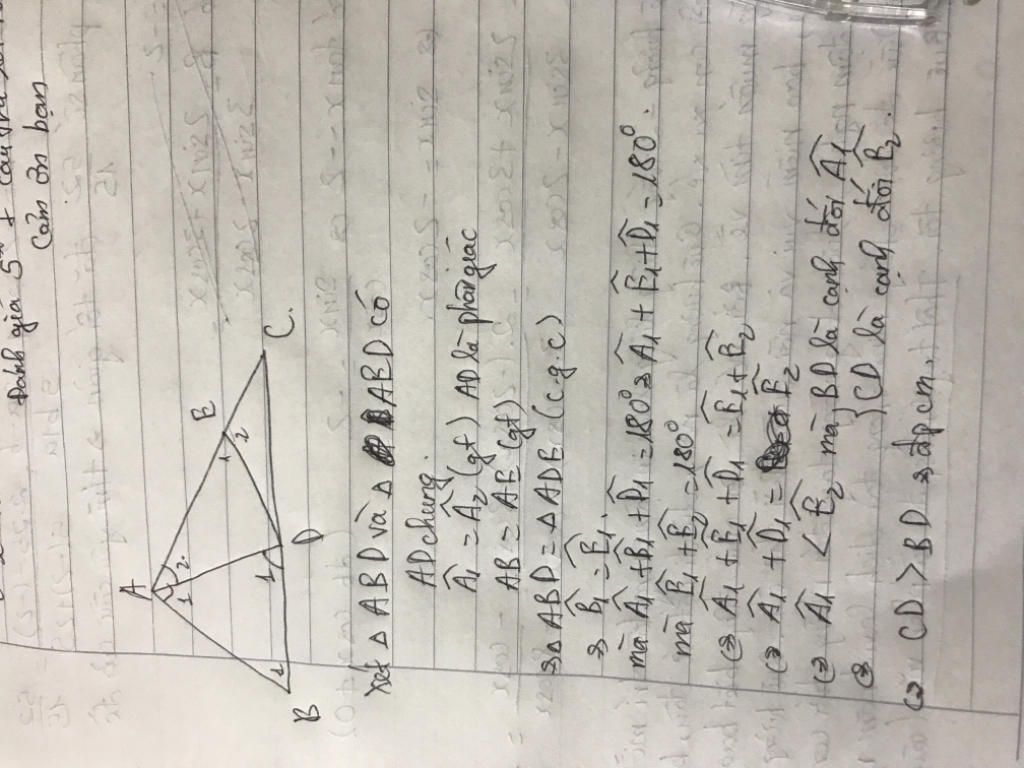 Đánh giá 5
Cảm ơn bạn
A
1 2
E
1 2
B
1
1
D
C.
Xét △ ABD và △ ABD có
AD chung.
Â₁ = Â₂ (gt) AD là phân giác
AB = AE (gt)
⇒ △ ABD = △ ADE (c.g.c)
⇒ B̂₁ = Ê₁.
mà Â₁ + B̂₁ + D̂₁ = 180° ⇒ Â₁ + Ê₁ + D̂₁ = 180°.
mà Ê₁ + Ê₂ = 180°
(⇒ Â₁ + Ê₁ + D̂₁ = Ê₁ + Ê₂
(⇒ Â₁ + D̂₁ = Ê₂
(⇒ Â₁ < Ê₂ mà } BD là cạnh đối Â₁
⇒ } CD là cạnh đối Ê₂.
(⇒ CD > BD ⇒ đpcm.